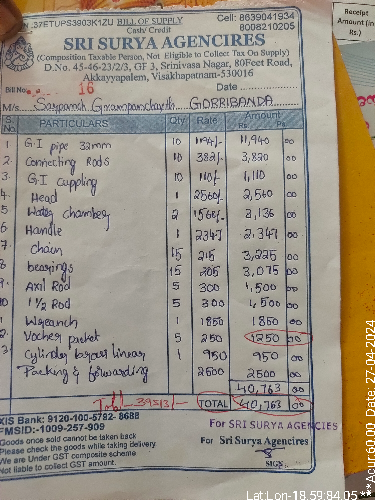 .37ETUPS3903K1ZU BILL OF SUPPLY Cell: 8639041934
Cash/ Credit 8008210205
SRI SURYA AGENCIRES
(Composition Taxable Person, Not Eligible to Collect Tax On Supply)
D.No. 45-46-23/2/3, GF 3, Srinivasa Nagar, 80Feet Road,
Akkayyapalem, Visakhapatnam-530016
Bill No: 16 Date
M/s Sarpanch Grampanchayith GORRIBANDA
S. No. PARTICULARS Qty Rate Amount Rs. Ps.
1 G.I pipe 32mm 10 1194/- 11,940 00
2 Connecting Rods 10 382/- 3,820 00
3 G.I Cuppling 10 110/- 1,110 00
4 Head 1 2560/- 2,560 00
5 Water chamber 2 1568/- 3,136 00
6 Handle 1 2347 2,347 00
7 chain 15 215 3,225 00
8 bearings 15 205 3,075 00
9 Axil Rod 5 300 1,500 00
10 1 1/2 Rod 5 300 1,500 00
1 Wreanch 1 1850 1850 00
2 Vocher packet 5 250 1250 00
3 Cylinder linear 1 950 950 00
Packing & forwarding 2500 2500 00
40,763 00
Total 39513/- TOTAL 40,763 00
XIS Bank: 9120-100-5782- 8688 For SRI SURYA AGENCIES
FMSID:-1009-257-909
Goods once sold cannot be taken back For Sri Surya Agencires
Please check the goods while taking delivery
We are Under GST composite scheme
Not liable to collect GST amount. SIGN..
Receipt
Amount (in
Rs.)
Lat Lon-18.59:84.05 ***Acur:60.00, Date: 27-04-2024